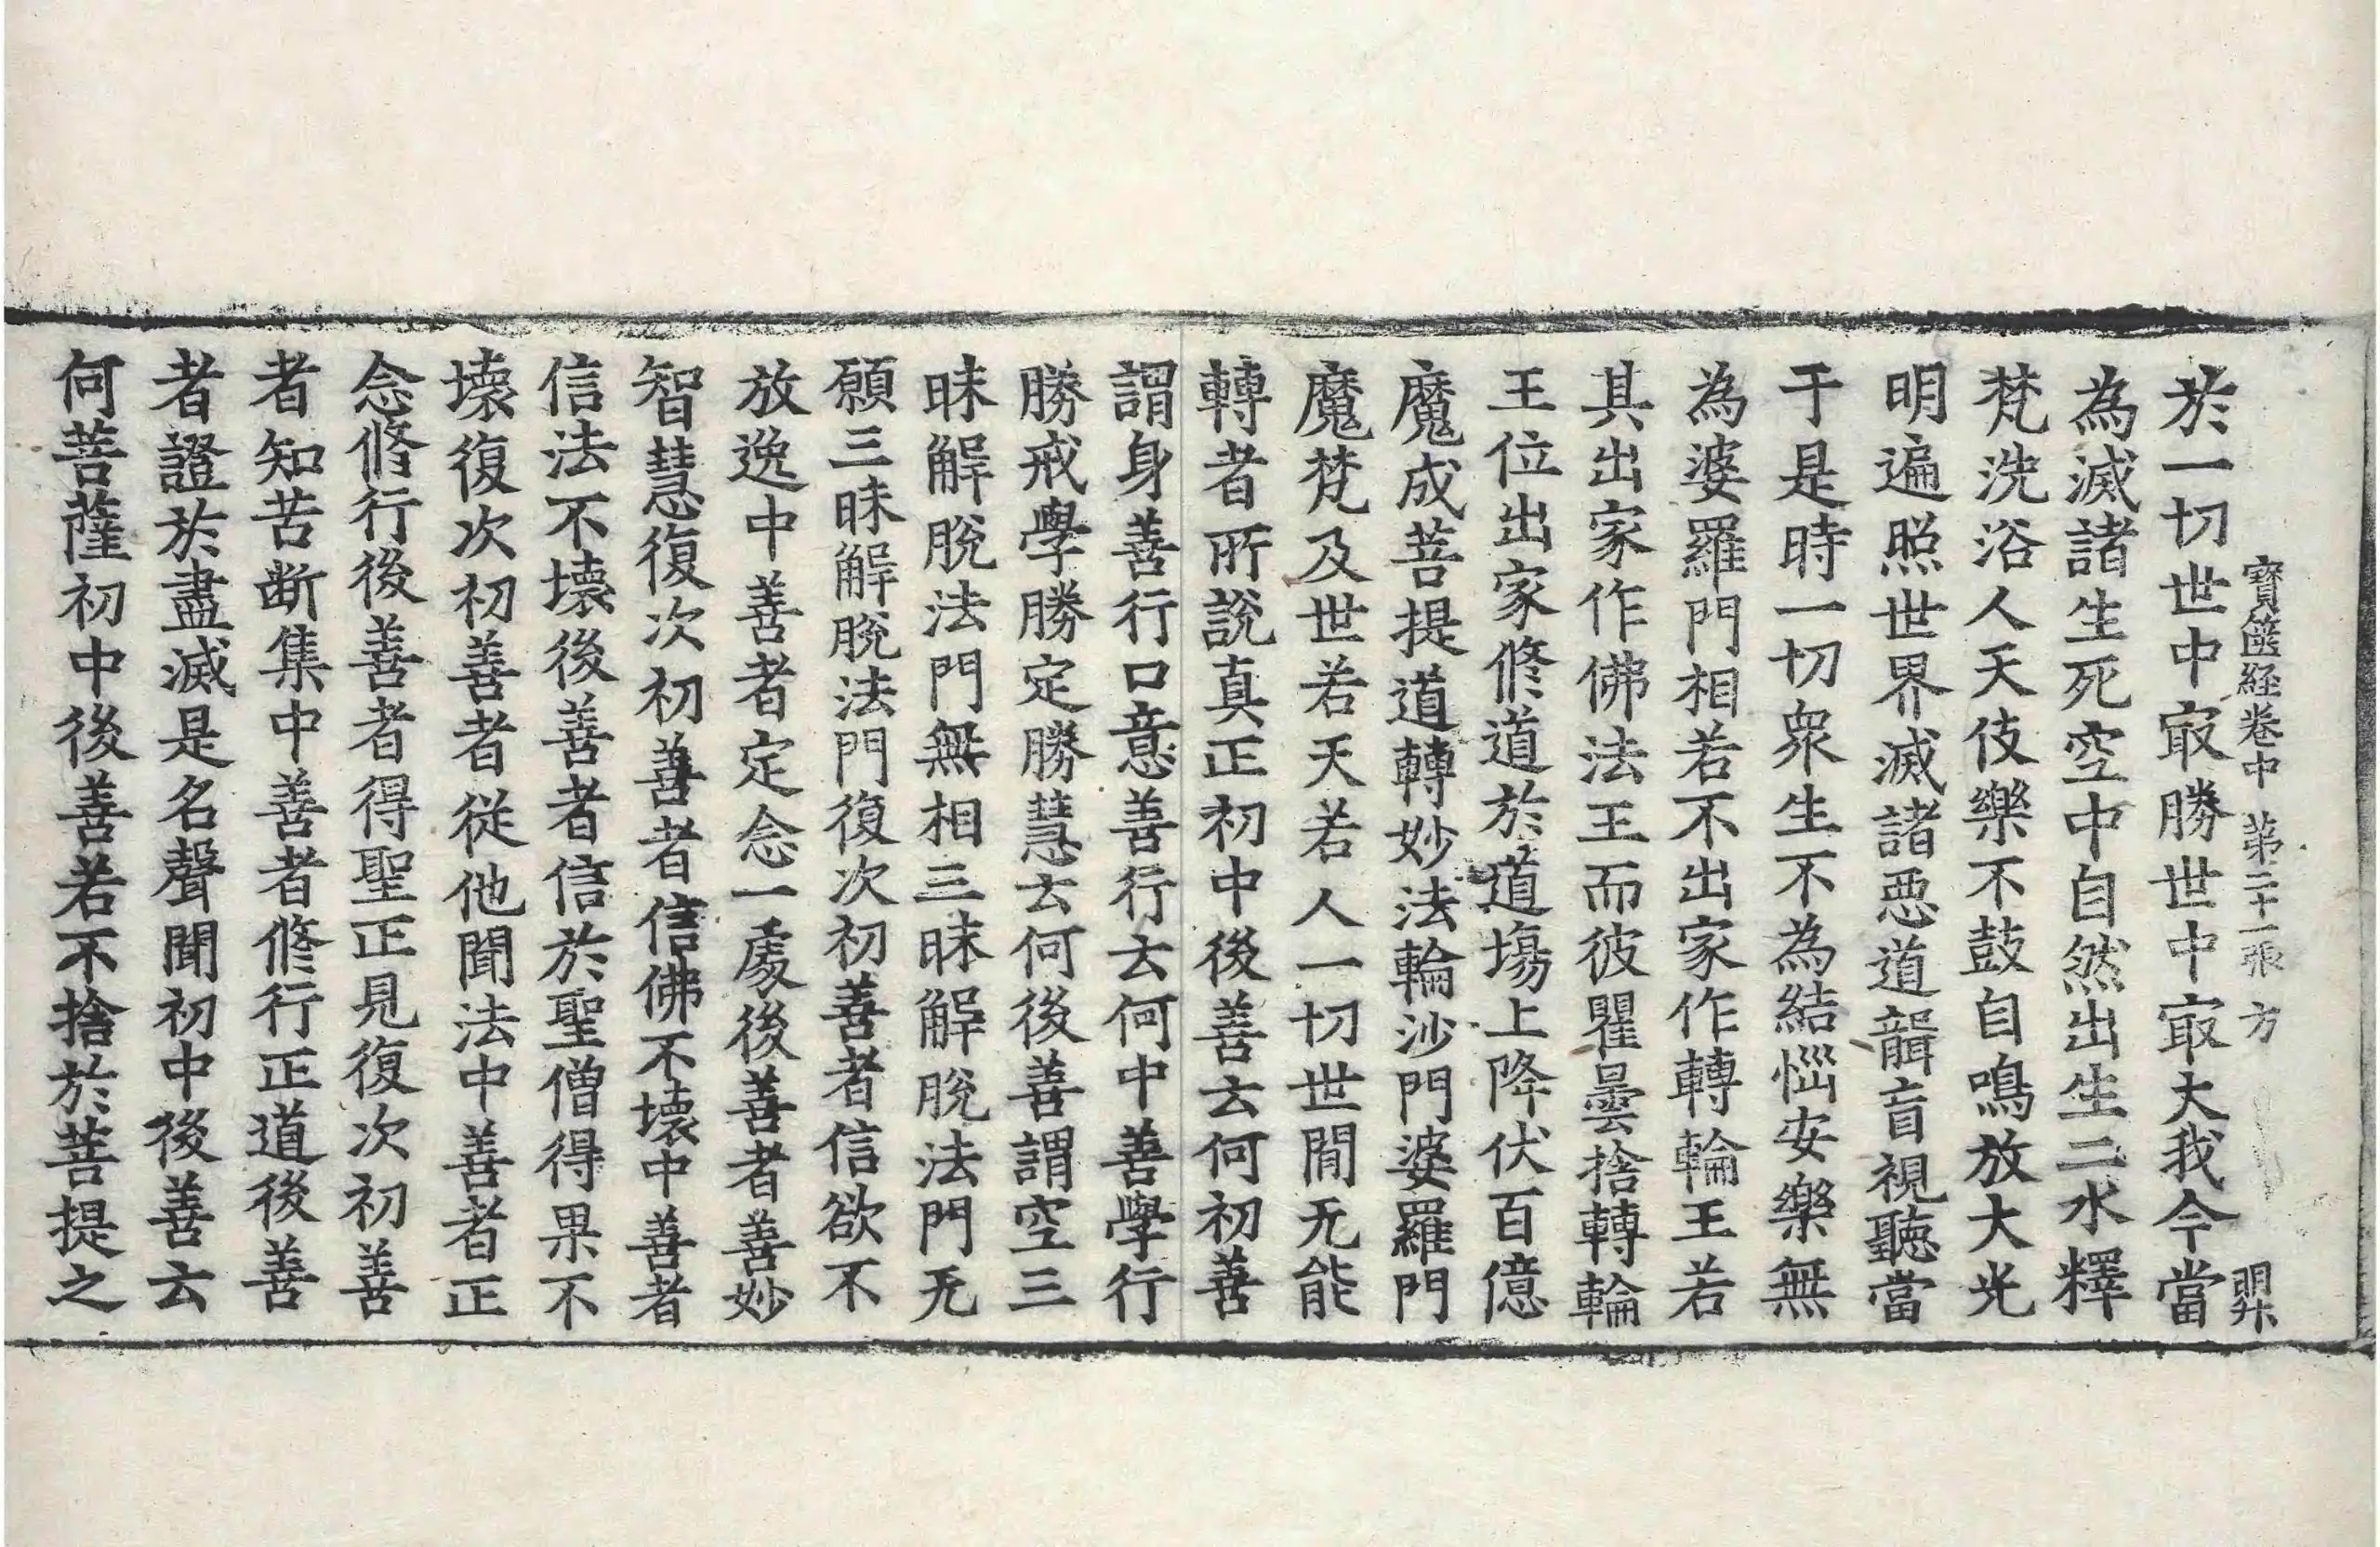 寶篋経卷中 第二十一張 方 羿
於一切世中㝡勝世中㝡大我今當
為滅諸生死空中自然出生二水釋
梵洗浴人天伎樂不鼓自鳴放大光
明遍照世界滅諸惡道聾盲視聽當
于是時一切衆生不為結惱安樂無
為婆羅門相若不出家作轉輪王若
其出家作佛法王而彼瞿曇捨轉輪
王位出家修道於道場上降伏百億
魔成菩提道轉妙法輪沙門婆羅門
魔梵及世若天若人一切世間无能
轉者所說真正初中後善云何初善
謂身善行口意善行云何中善學行
勝戒學勝定勝慧云何後善謂空三
昧解脫法門無相三昧解脫法門无
願三昧解脫法門復次初善者信欲不
放逸中善者定念一處後善者善妙
智慧復次初善者信佛不壞中善者
信法不壞後善者信於聖僧得果不
壞復次初善者從他聞法中善者正
念修行後善者得聖正見復次初善
者知苦断集中善者修行正道後善
者證於盡滅是名聲聞初中後善云
何菩薩初中後善若不捨於菩提之